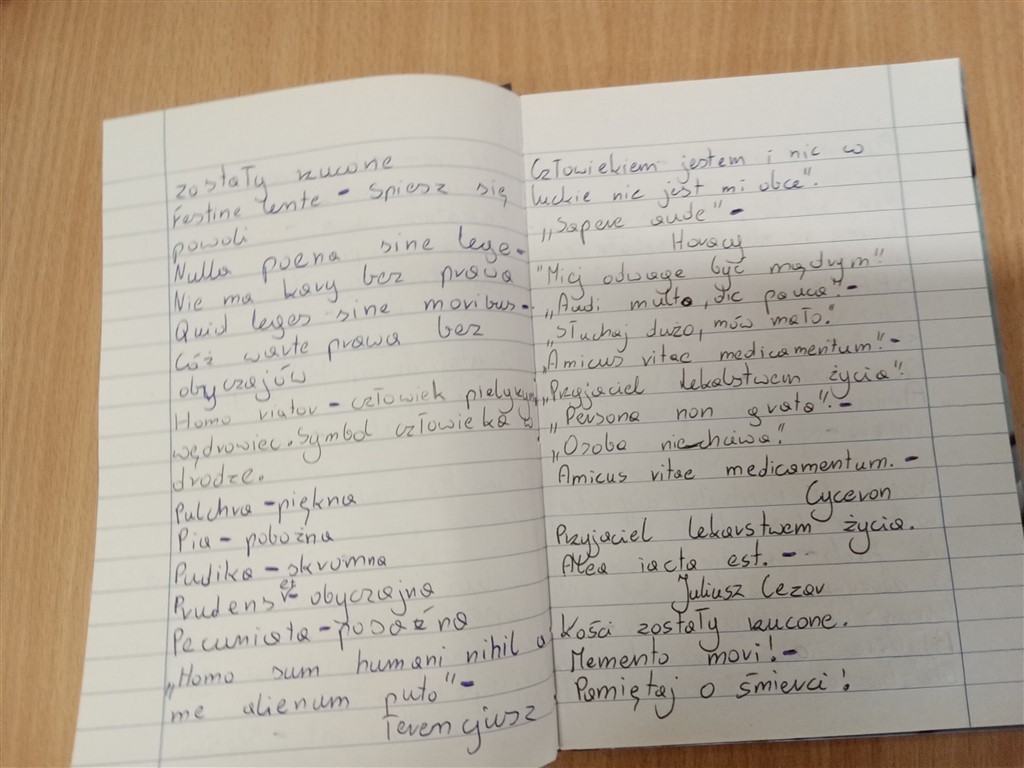 zostały rzucone
Festine lente - Spiesz się
powoli
Nulla poena sine lege -
Nie ma kary bez prawa
Quid leges sine moribus -
Cóż warte prawa bez
obyczajów
Homo viator - człowiek pielgrzym
wędrowiec. Symbol człowieka w
drodze.
Pulchra - piękna
Pia - pobożna
Pudika - skromna
Prudens et - obyczajna
Pecuniata - posażna
„Homo sum humani nihil a
me alienum puto" -
Terencjusz
Człowiekiem jestem i nic w
luckie nic jest mi obce".
„Sapere aude" -
Horacy
"Miej odwagę być mądrym"!
„Audi multa, dic pauca". -
„Słuchaj dużo, mów mało."
„Amicus vitae medicamentum". -
„Przyjaciel lekalstwem życia".
„Persona non grata". -
„Osoba niechciwa."
Amicus vitae medicamentum. -
Cyceron
Przyjaciel lekarstwem życia.
Alea iacta est. -
Juliusz Cezar
Kości zostały rzucone.
Memento mori! -
Pamiętaj o śmierci!